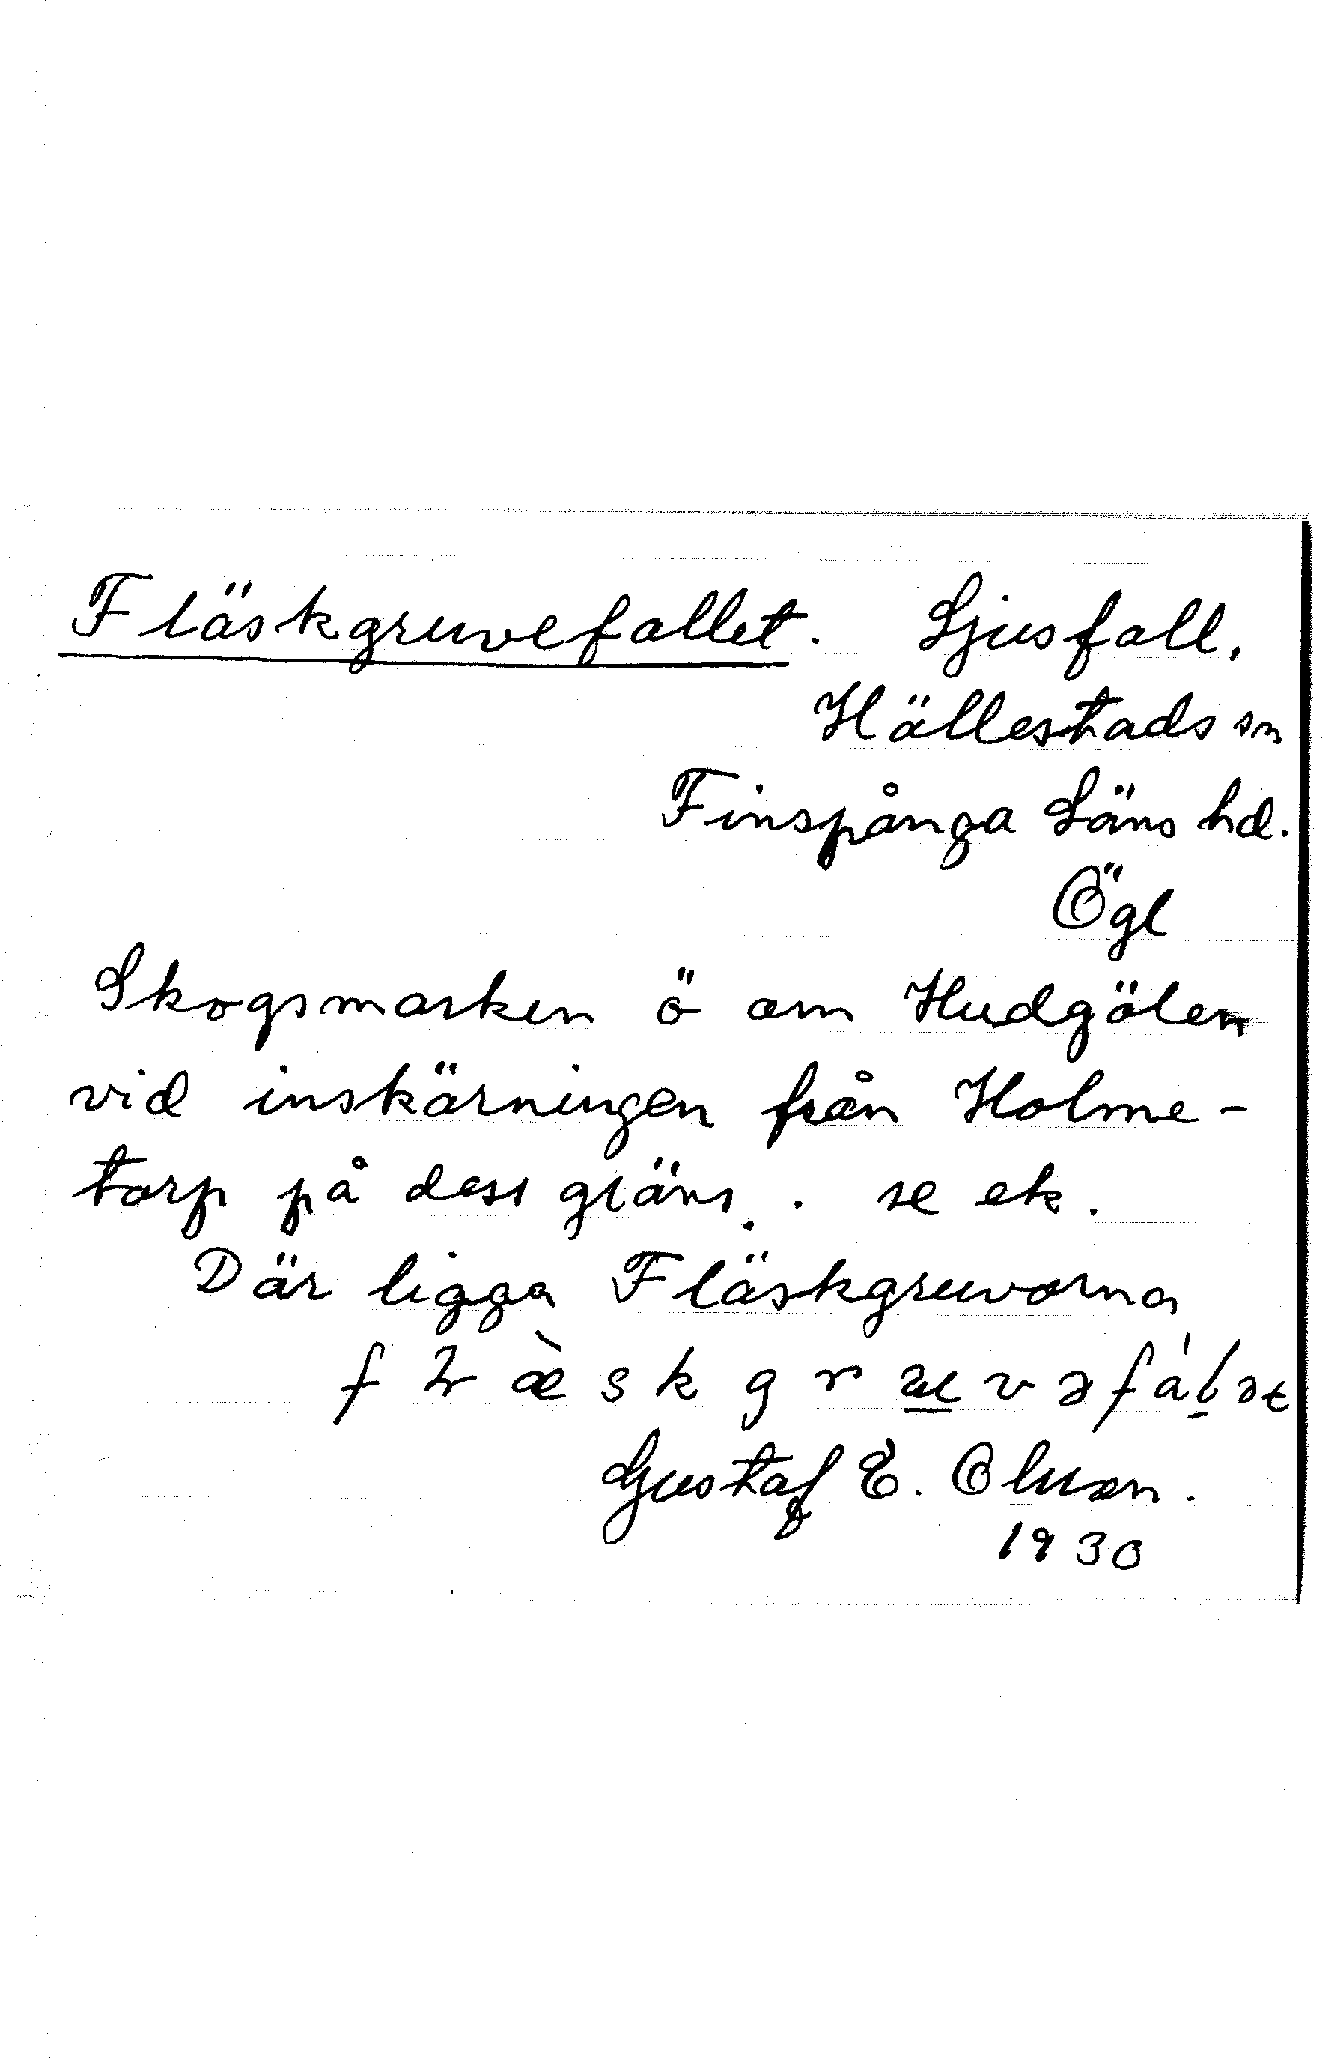 Fläskgruvefallet. Ljusfall,
Hällestads sn
Finspånga Läns hd.
Ögl
Skogsmarken ö om Hudgölen
vid inskärningen från Holme-
torp på dess gräns. . se ek.
Där ligga Fläskgruvorna
Gustaf E. Olsson.
1930